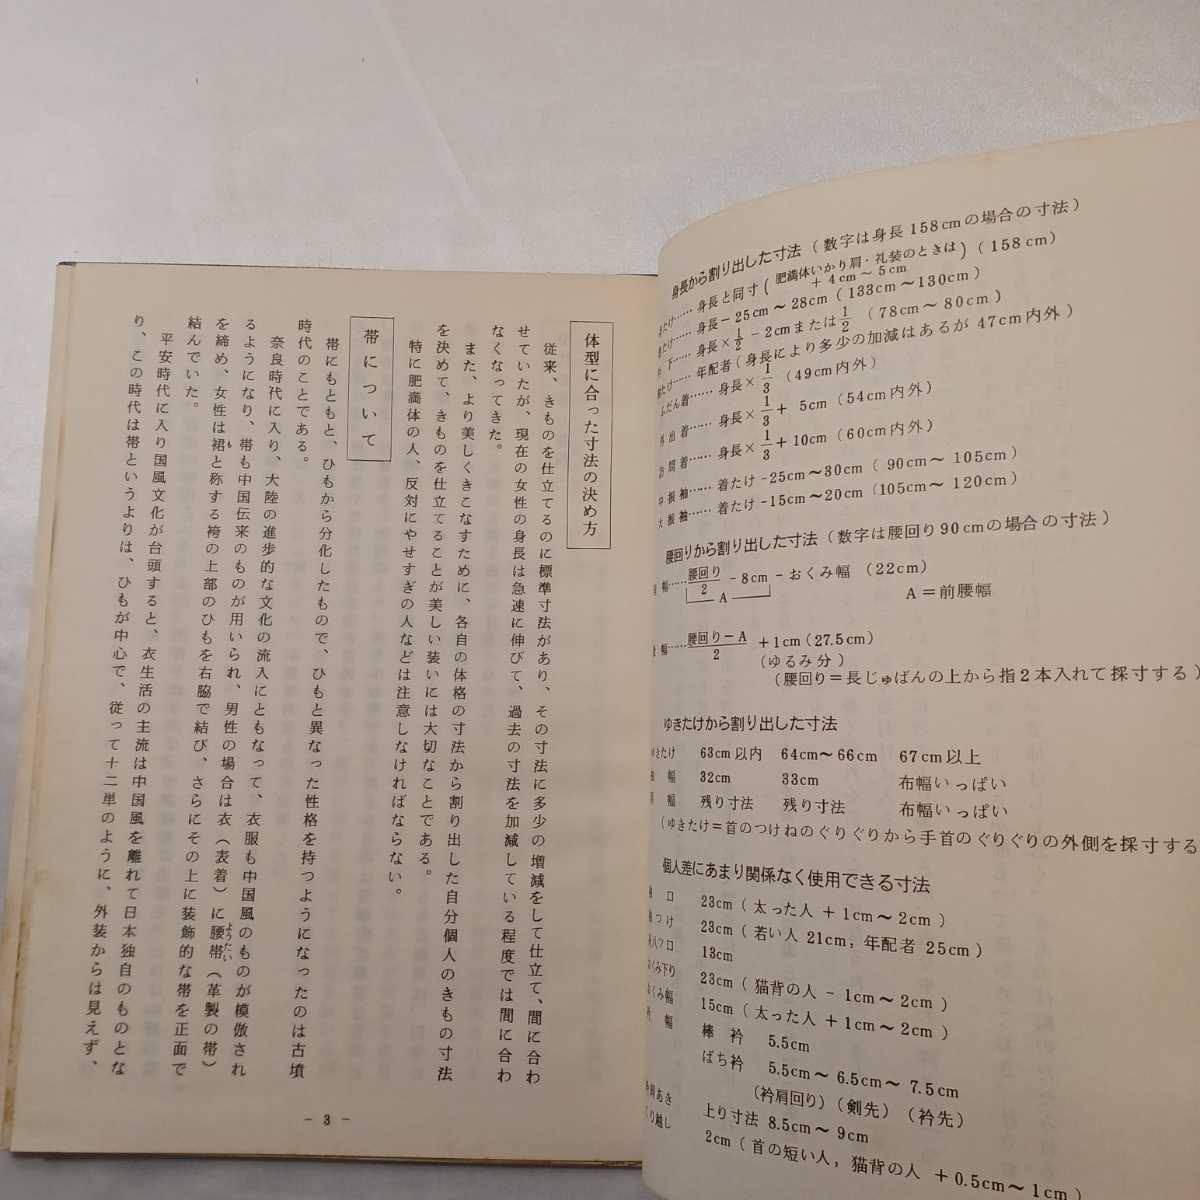 体型に合った寸法の決め方
従来、きものを仕立てるのに標準寸法があり、その寸法に多少の増減をして仕立て、間に合わ
せていたが、現在の女性の身長は急速に伸びて、過去の寸法を加減している程度では間に合わ
なくなってきた。
また、より美しくきこなすために、各自の体格の寸法から割り出した自分個人のきもの寸法
を決めて、きものを仕立てることが美しい装いには大切なことである。
特に肥満体の人、反対にやせすぎの人などは注意しなければならない。
帯について
帯にもともと、ひもから分化したもので、ひもと異なった性格を持つようになったのは古墳
時代のことである。
奈良時代に入り、大陸の進歩的な文化の流入にともなって、衣服も中国風のものが模倣され
るようになり、帯も中国伝来のものが用いられ、男性の場合は衣（表着）に腰帯（革製の帯）
ようたい
を締め、女性は裙と称する袴の上部のひもを右脇で結び、さらにその上に装飾的な帯を正面で
も
結んでいた。
平安時代に入り国風文化が台頭すると、衣生活の主流は中国風を離れて日本独自のものとな
り、この時代は帯というよりは、ひもが中心で、従って十二単のように、外装からは見えず、
– 3 –
身長から割り出した寸法（数字は身長158cmの場合の寸法）
たけ…… 身長と同寸（肥満体いかり肩・礼装のときは +4cm～5cm）（158cm）
たけ…… 身長－25cm～28cm（133cm～130cm）
下…… 身長×1/2－2cmまたは1/2（78cm～80cm）
たけ…… 年配者（身長により多少の加減はあるが 47cm内外）
ふだん着…… 身長×1/3（49cm内外）
外出着…… 身長×1/3＋5cm（54cm内外）
訪問着…… 身長×1/3＋10cm（60cm内外）
中振袖…… 着たけ－25cm～30cm（90cm～105cm）
大振袖…… 着たけ－15cm～20cm（105cm～120cm）
腰回りから割り出した寸法（数字は腰回り90cmの場合の寸法）
幅…… 腰回り/2－8cm－おくみ幅（22cm）
A　A＝前腰幅
幅…… 腰回り－A/2＋1cm（27.5cm）
（ゆるみ分）
（腰回り＝長じゅばんの上から指2本入れて採寸する）
ゆきたけから割り出した寸法
ゆきたけ　63cm以内　64cm～66cm　67cm以上
幅　32cm　33cm　布幅いっぱい
幅　残り寸法　残り寸法　布幅いっぱい
（ゆきたけ＝首のつけねのぐりぐりから手首のぐりぐりの外側を採寸する
個人差にあまり関係なく使用できる寸法
口　23cm（太った人＋1cm～2cm）
つけ　23cm（若い人21cm，年配者25cm）
八ツ口　13cm
おくみ下り　23cm（猫背の人－1cm～2cm）
おくみ幅　15cm（太った人＋1cm～2cm）
幅　棒衿　5.5cm
ばち衿　5.5cm～6.5cm～7.5cm
（衿肩回り）（剣先）（衿先）
肩あき　上り寸法 8.5cm～9cm
くり越し　2cm（首の短い人，猫背の人　＋0.5cm～1cm）